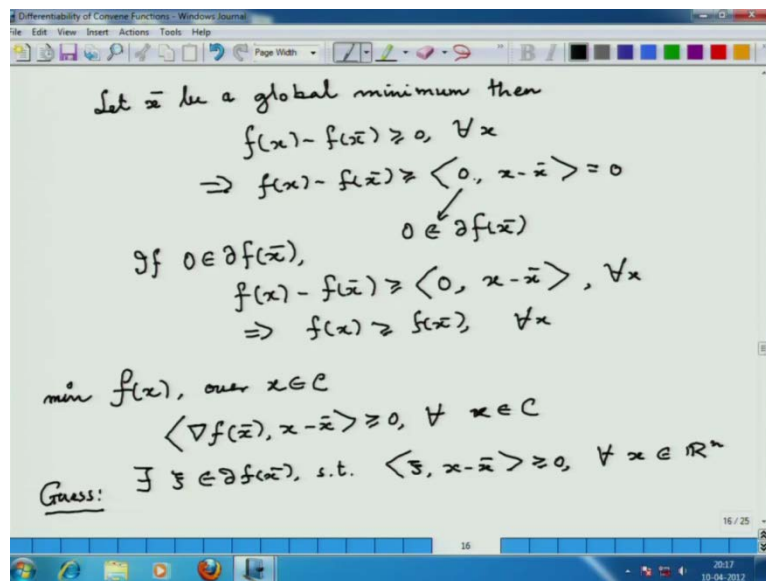 Differentiability of Convene Functions - Windows Journal
File Edit View Insert Actions Tools Help
Page Width
B I
Let x̄ be a global minimum then
f(x) - f(x̄) ≥ 0, ∀x
⇒ f(x) - f(x̄) ≥ ⟨0, x - x̄⟩ = 0
0 ∈ ∂f(x̄)
If 0 ∈ ∂f(x̄),
f(x) - f(x̄) ≥ ⟨0, x - x̄⟩, ∀x
⇒ f(x) ≥ f(x̄), ∀x
min f(x), over x ∈ C
⟨∇f(x̄), x - x̄⟩ ≥ 0, ∀ x ∈ C
Guess: ∃ ξ ∈ ∂f(x̄), s.t. ⟨ξ, x - x̄⟩ ≥ 0, ∀ x ∈ ℝⁿ
16 / 25
16
20:17
10-04-2012